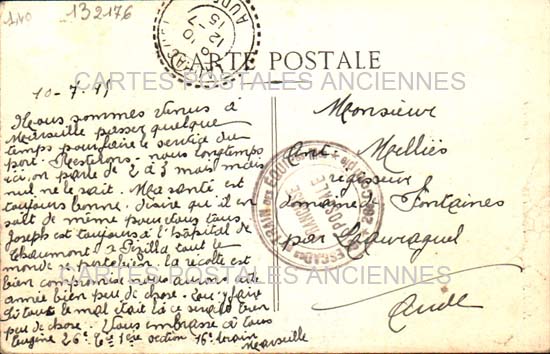 1,40 132176
AUDE
12-7
15
CARTE POSTALE
CARTES POSTALES ANCIENNES
10-7-15
Nous sommes venus à
Marseille passer quelque
temps pour faire le service du
port. Resterons-nous longtemps
ici, on parle de 2 à 3 mois mais
nul ne le sait. Ma santé est
toujours bonne. Désire qu'il en
soit de même pour vous tous
Joseph est toujours à l'hôpital de
Chaumont à tout le
monde la récolte est
bien compromise nous aurons cette
année bien peu de chose. Que faire
Si tout le mal était là ce serait bien
peu de chose. Vous embrasse à tous
Eugène 26e 1ère section 16e train
Marseille
Monsieur
Ant. Melliès
régisseur
domaine de Fontaines
par Lauraguel
Aude
TRAIN DES ÉQUIPAGES
POSTALE